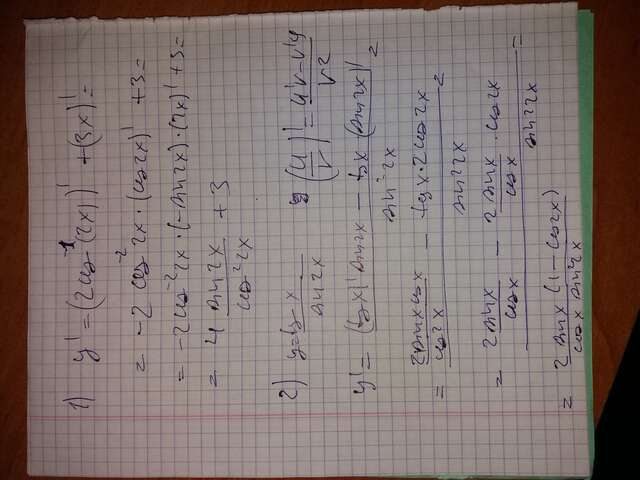 1) y' = (2cos⁻¹(2x))' + (3x)' =
= -2 cos⁻²2x · (cos2x)' + 3 =
= -2cos⁻²2x · (-sin2x) · (2x)' + 3 =
= 4 sin2x / cos²2x + 3
2) y = tg x / sin2x (u/v)' = u'v - v'u / v²
y' = (tgx)' sin2x - tgx (sin2x)' / sin²2x =
= 2sinx cosx / cos²x - tgx · 2cos2x / sin²2x =
= 2sinx / cosx - 2sinx / cosx · cos2x / sin²2x =
= 2sinx (1 - cos2x) / cosx sin²2x